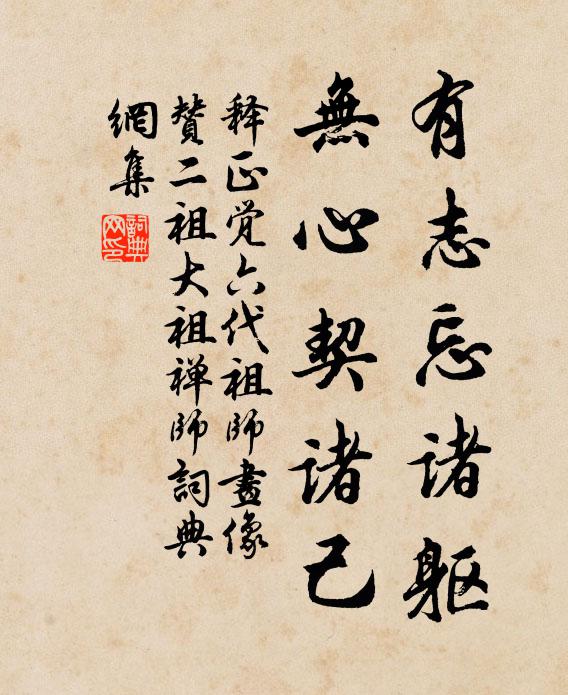 有志忘诸躯
無心契诸己
释正觉六代祖师畫像
賛二祖大祖禅师詞典
網集
詞典
网印